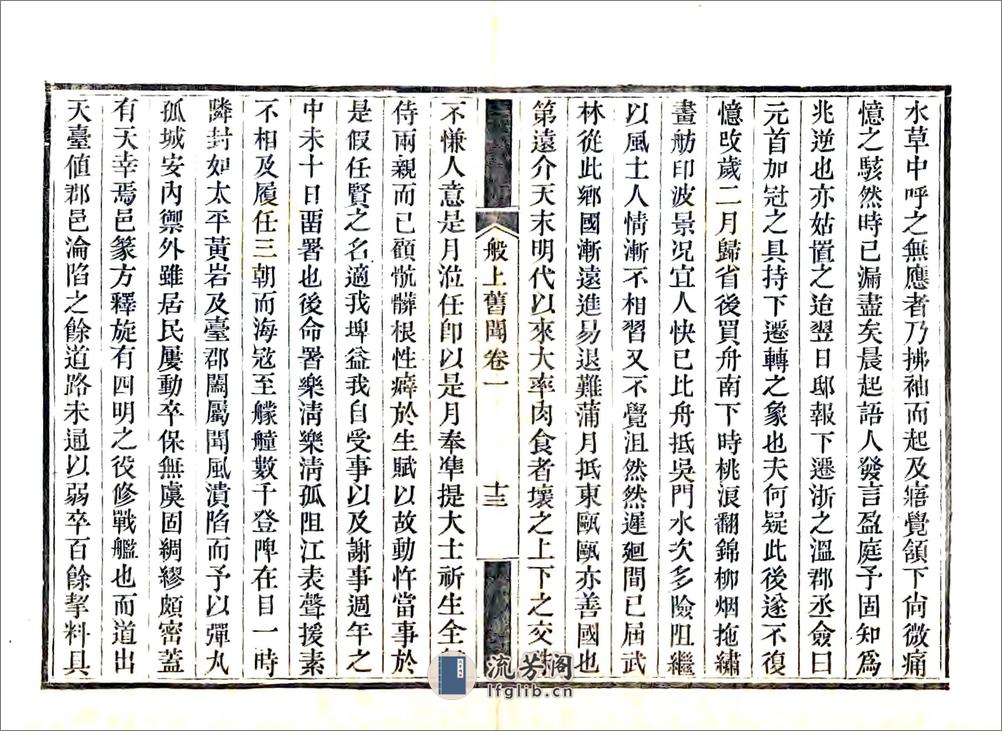 水草中呼之無應者乃拂袖而起及寤覺頷下尙微痛
憶之駭然時已漏盡矣晨起語人發言盈庭予固知爲
兆逆也亦姑置之迨翌日邸報下遷浙之溫郡丞僉曰
元首加冠之具持下遷轉之象也夫何疑此後遂不復
憶改歲二月歸省後買舟南下時桃浪翻錦柳烟拖繡
畫舫印波景况宜人快已比舟抵吳門水次多險阻繼
以風土人情漸不相習又不覺沮然然遲廻間已屆武
林從此鄉國漸遠進易退難蒲月抵東甌甌亦善國也
第遠介天末明代以來大率肉食者壞之上下之交
般上舊聞卷一
十三
不慊人意是月涖任卽以是月奉準提大士祈生全
侍兩親而已顧骯髒根性癖於生賦以故動忤當事於
是假任賢之名適我埤益我自受事以及謝事週年之
中未十日畱署也後命署樂淸樂淸孤阻江表聲援素
不相及履任三朝而海寇至艨艟數千登陴在目一時
隣封如太平黃岩及臺郡闔屬聞風潰陷而予以彈丸
孤城安內禦外雖居民屢動卒保無虞固綢繆頗密蓋
有天幸焉邑篆方釋旋有四明之役修戰艦也而道出
天臺値郡邑淪陷之餘道路未通以弱卒百餘挈料具
流芳閣
lfglib.cn